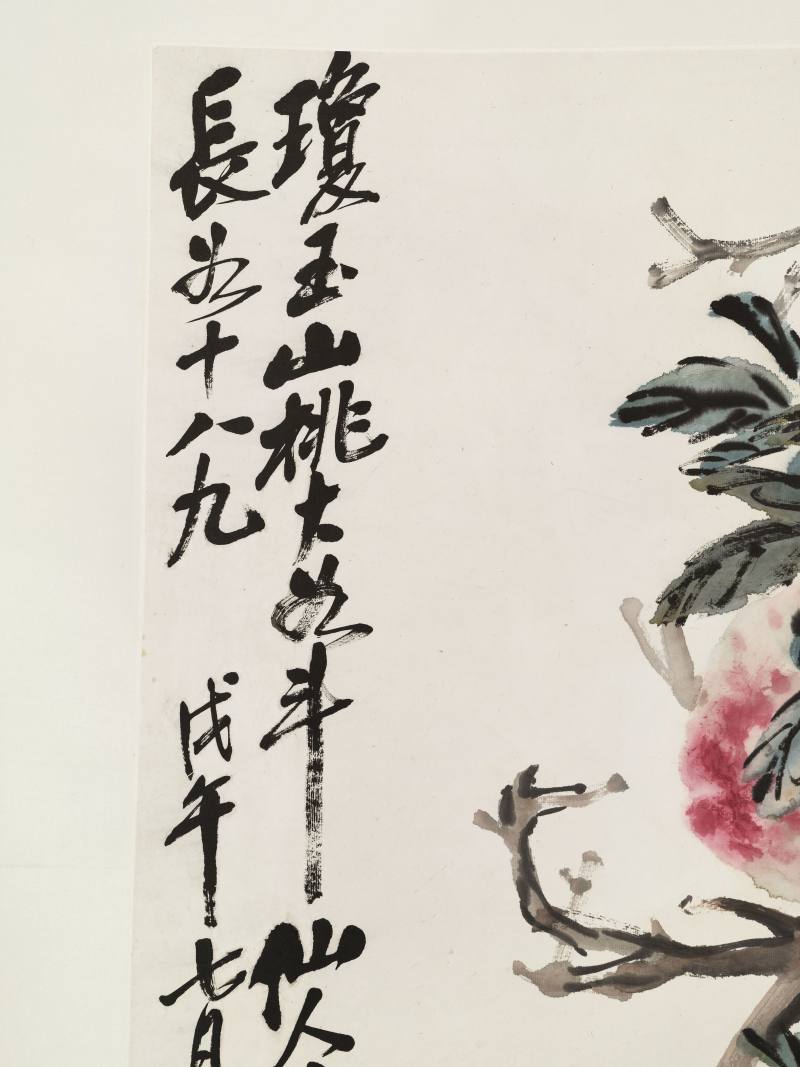 瓊玉山桃大如斗仙人
長如十八九 戊午七月